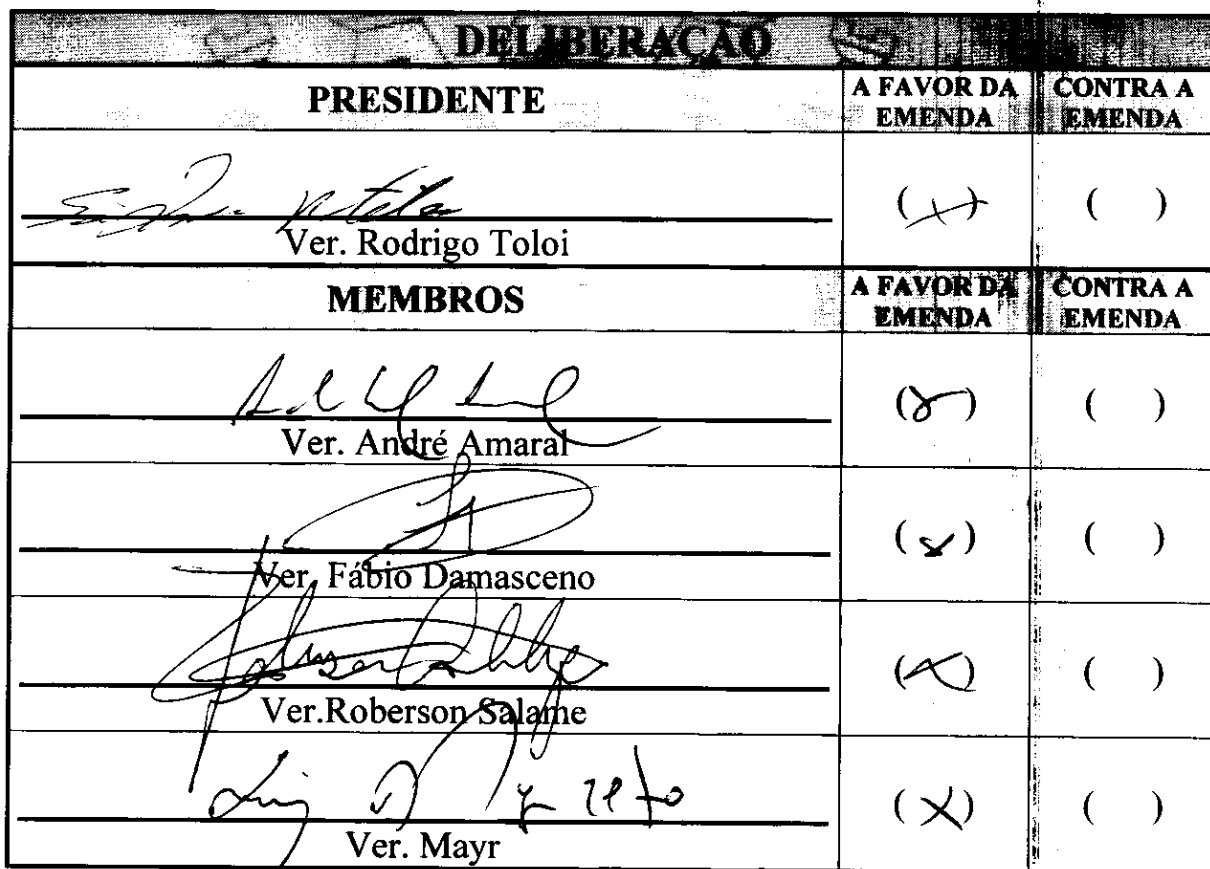 DELIBERAÇÃO
PRESIDENTE A FAVOR DA EMENDA CONTRA A EMENDA
( x ) ( )
Ver. Rodrigo Toloi
MEMBROS A FAVOR DA EMENDA CONTRA A EMENDA
( x ) ( )
Ver. André Amaral
( x ) ( )
Ver. Fábio Damasceno
( x ) ( )
Ver.Roberson Salame
( X ) ( )
Ver. Mayr